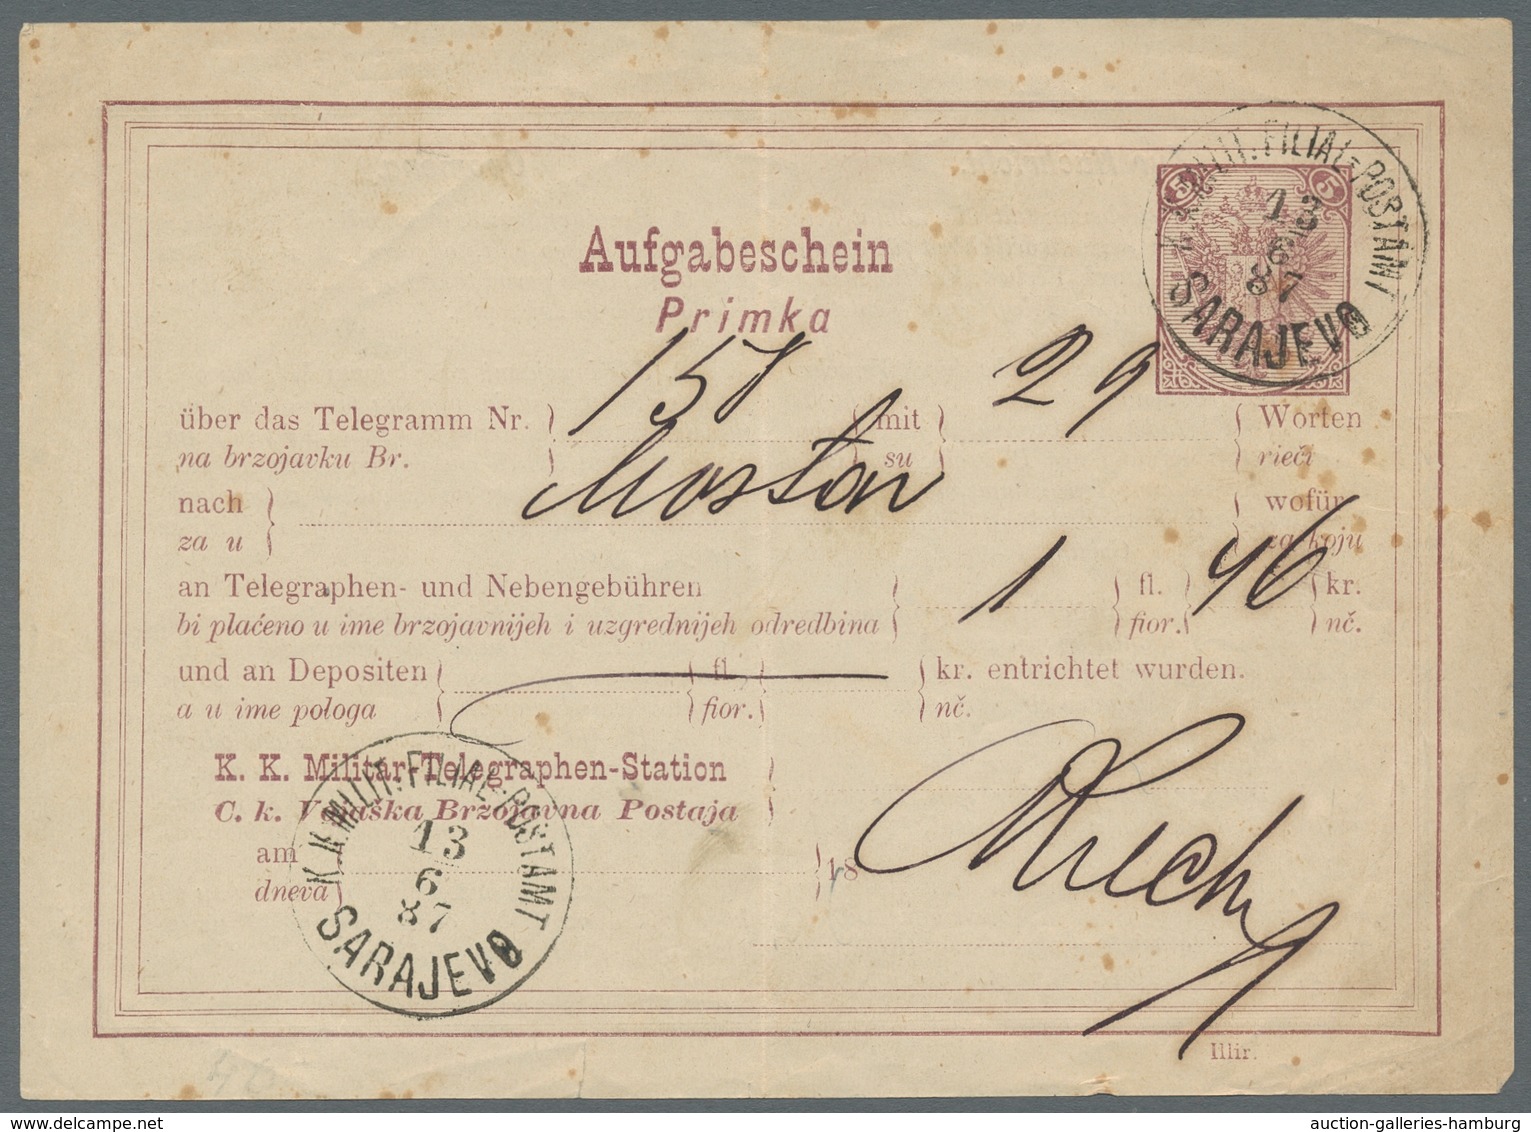 5 5
K.K. MILIT. FILIAL-POSTAMT
13
6
87
SARAJEVO
Aufgabeschein
Primka
über das Telegramm Nr. 158 mit 29 Worten
na brzojavku Br. su rieči
nach Mostar wofür
za u za koju
an Telegraphen- und Nebengebühren 1 fl. 46 kr.
bi plaćeno u ime brzojavnijeh i uzgrednijeh odredbina fior. nč.
und an Depositen fl. kr. entrichtet wurden.
a u ime pologa fior. nč.
K. K. Militär-Telegraphen-Station
C. k. Vojaška Brzojavna Postaja
am 18
dneva
K.K. MILIT. FILIAL-POSTAMT
13
6
87
SARAJEVO
Illir.
auction-galleries-hamburg